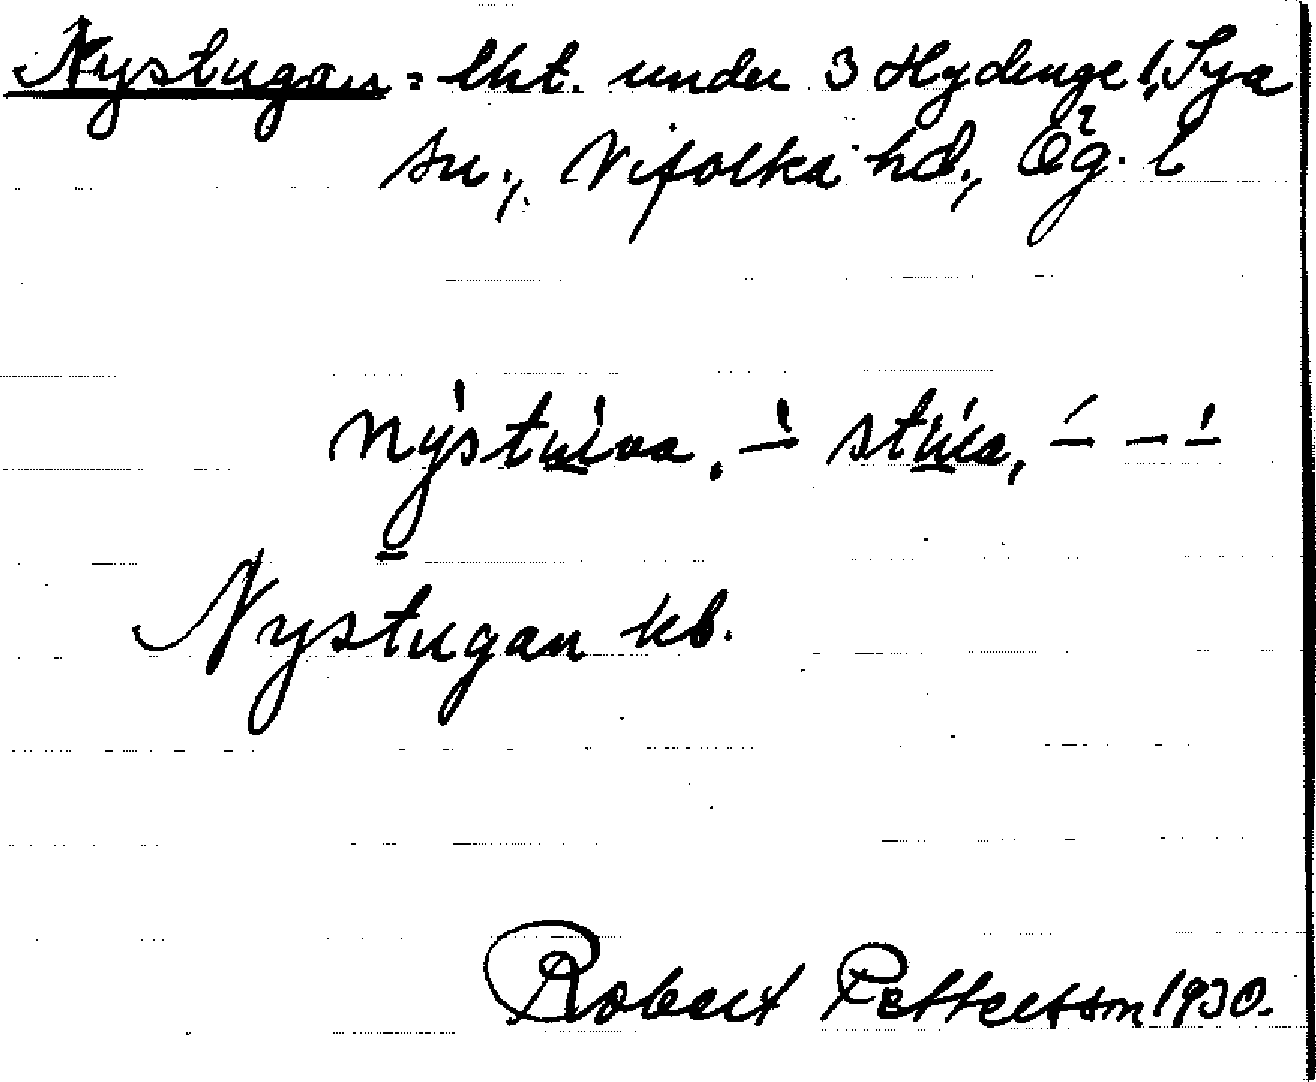 Nystugan = lht. under 3 Hydinge l, Sya
sn., Vifolka hd., Ög. l
nystuvva, – stua, – – –
Nystugan kb.
Robert Pettersson 1930.